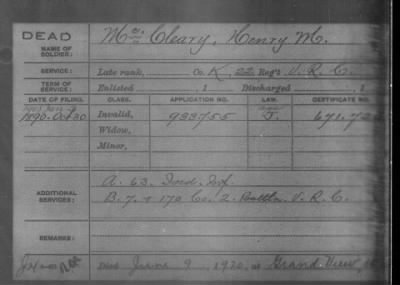 DEAD
NAME OF SOLDIER:
McCleary, Henry M.
SERVICE:
Late rank, Co. K, 22 Reg't V. R. C.
TERM OF SERVICE:
Enlisted , 1 Discharged , 1
DATE OF FILING. CLASS. APPLICATION NO. LAW. CERTIFICATE NO.
1890 Oct 20 Invalid, 933755 671.7
Widow,
Minor,
ADDITIONAL SERVICES:
A. 63. Ind. Inf.
B. 7. & 170 Co. 2. Battln. V. R. C.
REMARKS:
Died June 9 1920, at Grand View,